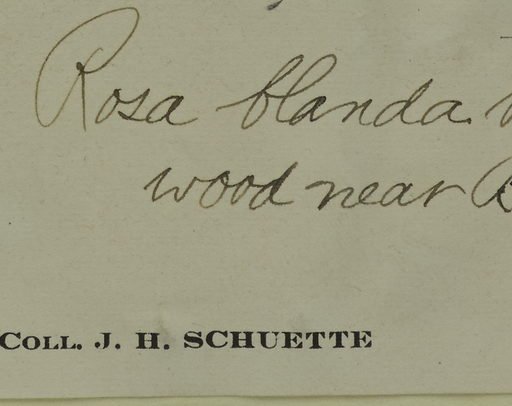 Rosa blanda
wood near
COLL. J. H. SCHUETTE